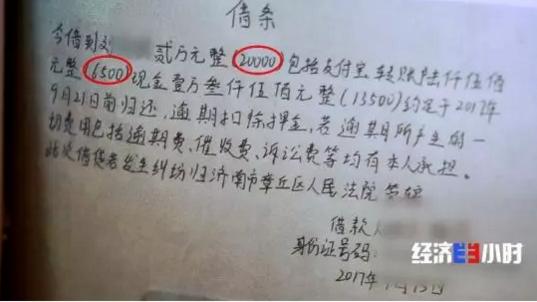 借条
今借到 贰万元整(20000)包括支付宝转账陆仟伍佰
元整(6500)现金壹万叁仟伍佰元整(13500)约定于2017年
9月21日前归还,逾期扣除押金,若逾期所产生的一
切费用包括逾期费、催收费、诉讼费等均有本人承担。
此次借借者发生纠纷归济南市章丘区人民法院
借款人
身份证号码:
2017年 月15日
经济半小时